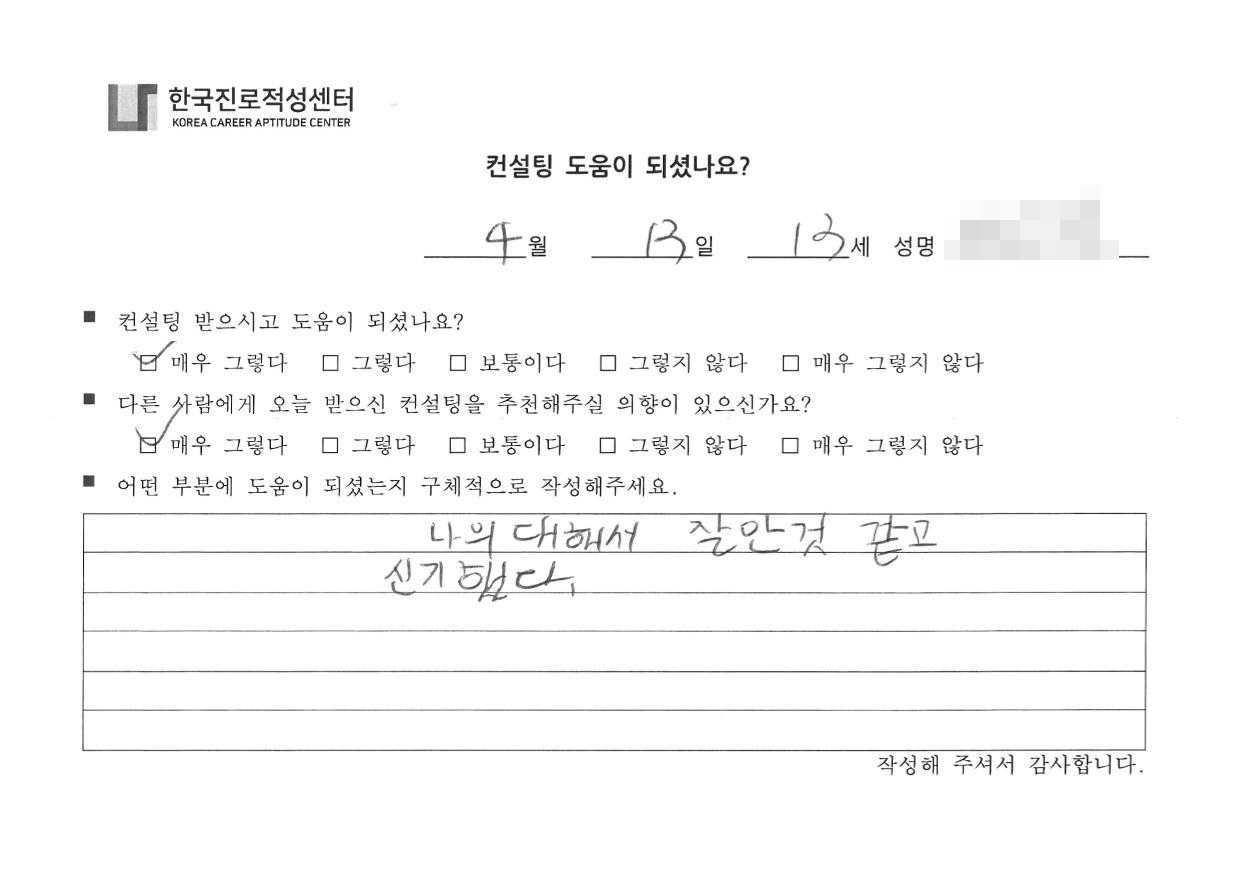 한국진로적성센터
KOREA CAREER APTITUDE CENTER
컨설팅 도움이 되셨나요?
4월 13일 13세 성명
■ 컨설팅 받으시고 도움이 되셨나요?
☑ 매우 그렇다 □ 그렇다 □ 보통이다 □ 그렇지 않다 □ 매우 그렇지 않다
■ 다른 사람에게 오늘 받으신 컨설팅을 추천해주실 의향이 있으신가요?
☑ 매우 그렇다 □ 그렇다 □ 보통이다 □ 그렇지 않다 □ 매우 그렇지 않다
■ 어떤 부분에 도움이 되셨는지 구체적으로 작성해주세요.
나의 대해서 잘안것 같고
신기했다.
작성해 주셔서 감사합니다.